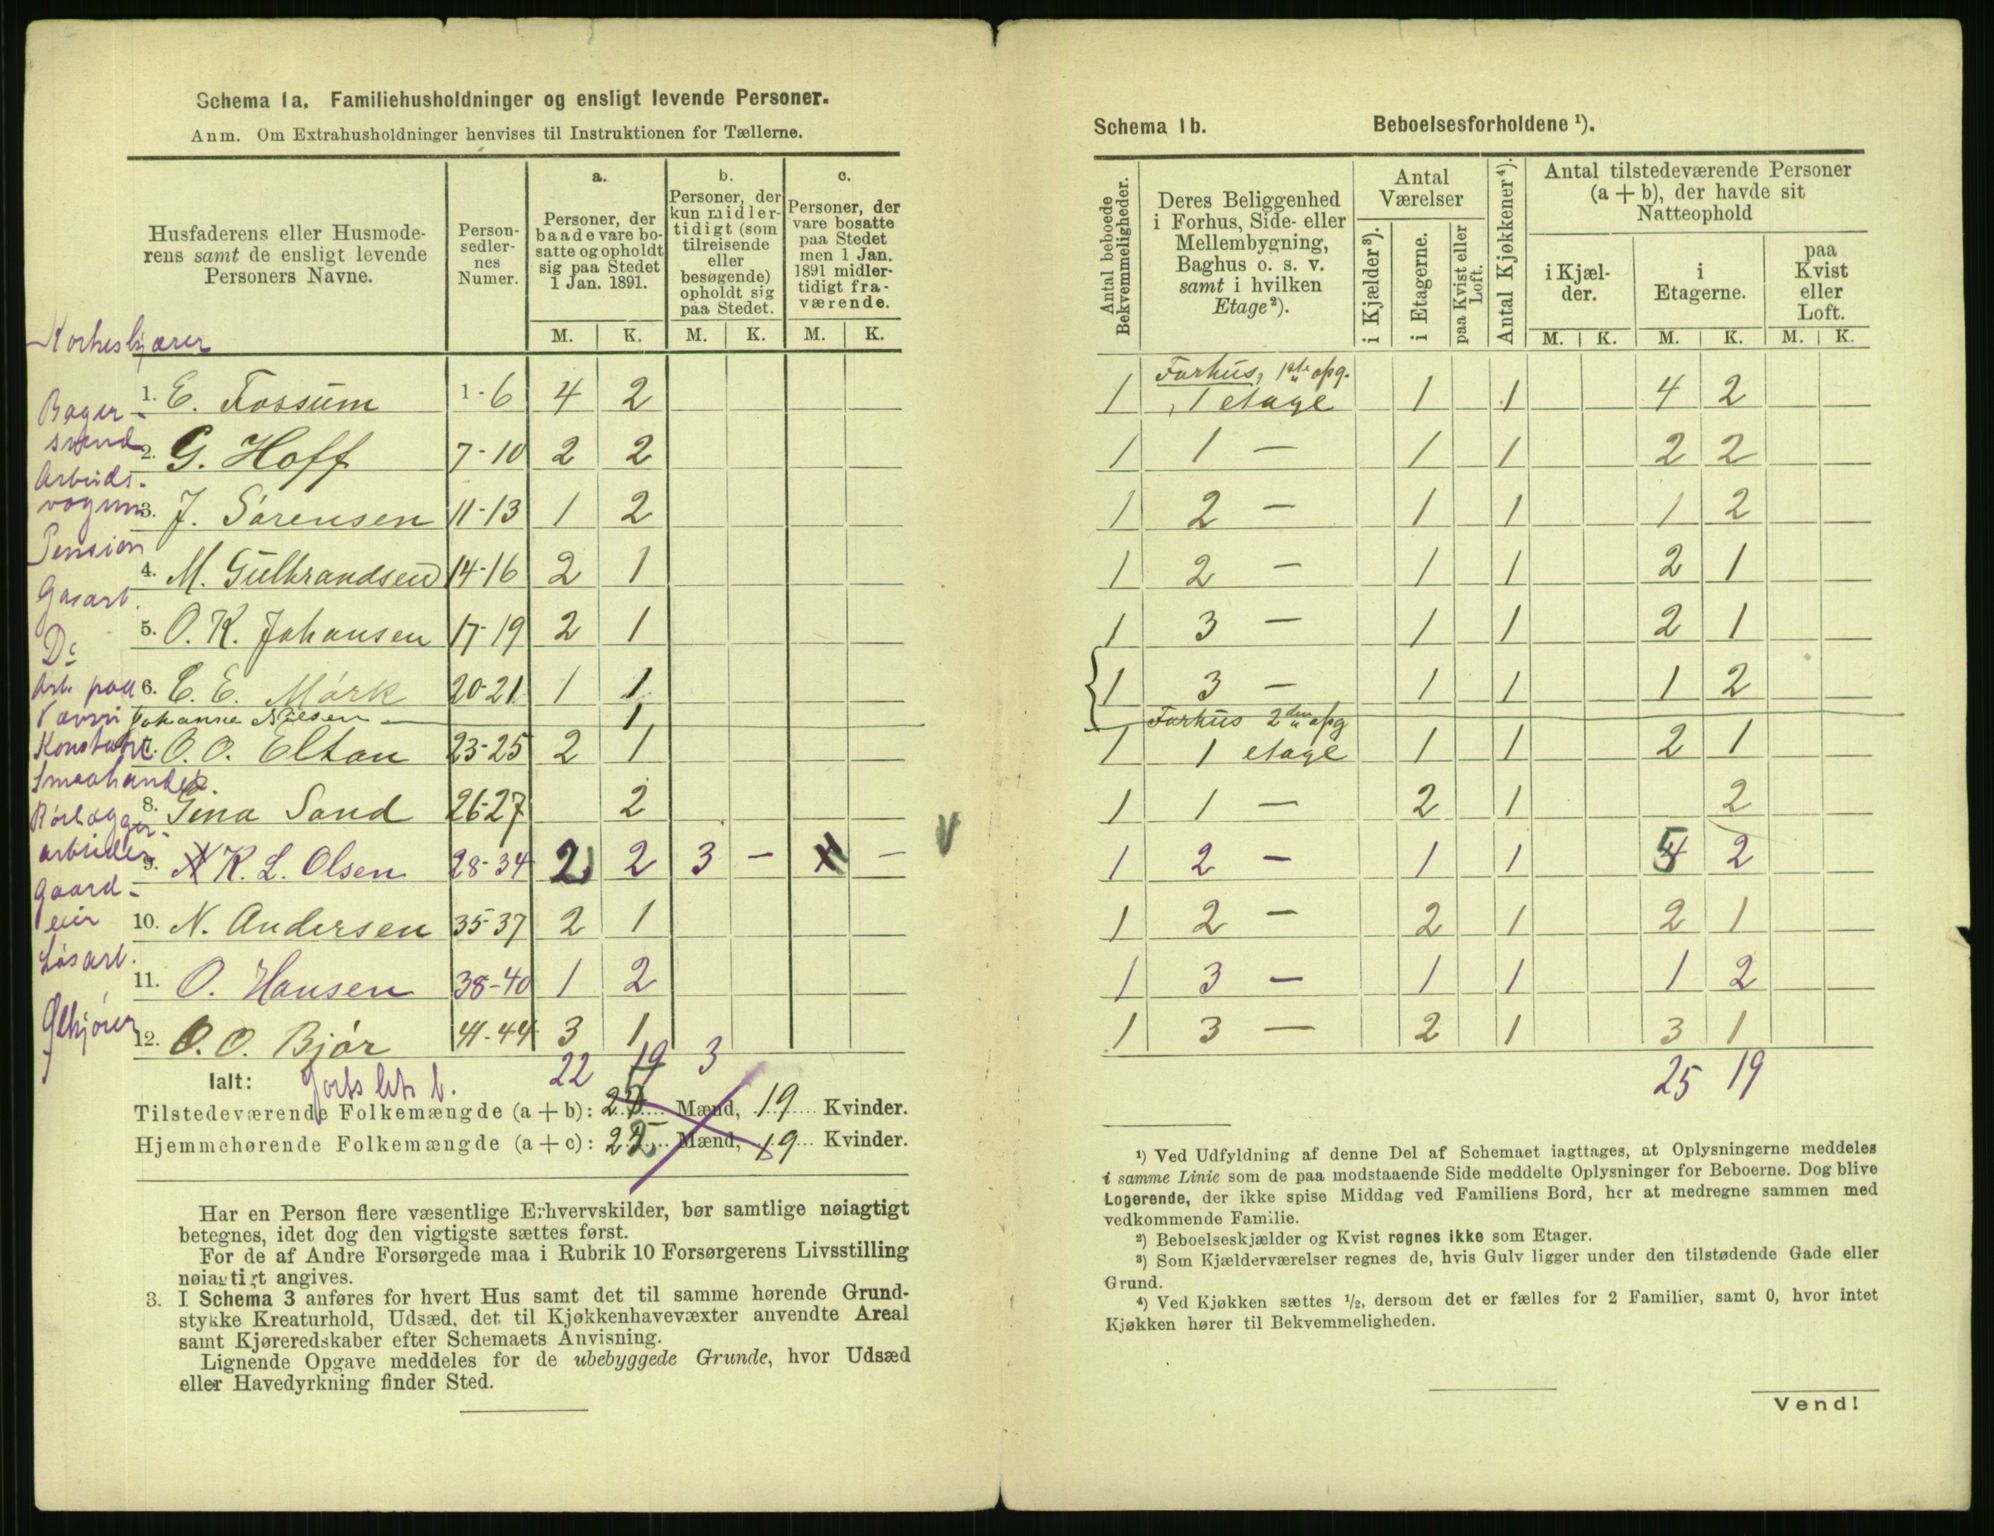 Schema 1a. Familiehusholdninger og ensligt levende Personer.
Anm. Om Extrahusholdninger henvises til Instruktionen for Tællerne.
Husfaderens eller Husmoderens samt de ensligt levende Personers Navne.
Personsedlernes Numer.
a.
Personer, der baade vare bosatte og opholdt sig paa Stedet 1 Jan. 1891.
b.
Personer, der kun midlertidigt (som tilreisende eller besøgende) opholdt sig paa Stedet.
c.
Personer, der vare bosatte paa Stedet men 1 Jan. 1891 midlertidigt fraværende.
M. K. M. K. M. K.
1. E. Fossum 1-6 4 2
Bager-
svend
2. G. Hoff 7-10 2 2
Arbeids-
3. J. Sørensen 11-13 1 2
Pension
4. M. Gulbrandsen 14-16 2 1
Gasarb.
5. O. K. Johansen 17-19 2 1
Do
Arb. paa
6. C. E. Mørk 20-21 1 1
Johanne Nilsen — 1
7. O. O. Eltan 23-25 2 1
Smaahandel.
8. Gina Sand 26-27 2
Rørlægger-
arbeider
9. K. L. Olsen 28-34 2 2 3 — —
Gaard-
eier
10. N. Andersen 35-37 2 1
Løsarb.
11. O. Hansen 38-40 1 2
Ølkjører
12. O. O. Bjør 41-44 3 1
Ialt: 22 19 3
Tilstedeværende Folkemængde (a + b): Mænd, 19 Kvinder.
Hjemmehørende Folkemængde (a + c): Mænd, 19 Kvinder.
Har en Person flere væsentlige Erhvervskilder, bør samtlige nøiagtigt
betegnes, idet dog den vigtigste sættes først.
For de af Andre Forsørgede maa i Rubrik 10 Forsørgerens Livsstilling
nøiagtigt angives.
3. I Schema 3 anføres for hvert Hus samt det til samme hørende Grund-
stykke Kreaturhold, Udsæd, det til Kjøkkenhavevæxter anvendte Areal
samt Kjøreredskaber efter Schemaets Anvisning.
Lignende Opgave meddeles for de ubebyggede Grunde, hvor Udsæd
eller Havedyrkning finder Sted.
Schema 1b. Beboelsesforholdene ¹).
Antal beboede Bekvemmeligheder.
Deres Beliggenhed i Forhus, Side- eller Mellembygning, Baghus o. s. v. samt i hvilken Etage²).
Antal Værelser
i Kjælder³).
i Etagerne.
paa Kvist eller Loft.
Antal Kjøkkener⁴).
Antal tilstedeværende Personer (a + b), der havde sit Natteophold
i Kjælder.
i Etagerne.
paa Kvist eller Loft.
M. K. M. K. M. K.
Forhus, 1ste opg.
1 1 etage 1 1 4 2
1 1 — 1 1 2 2
1 2 — 1 1 1 2
1 2 — 1 1 2 1
1 3 — 1 1 2 1
1 3 — 1 1 1 2
Forhus 2den opg
1 1 etage 1 1 2 1
1 1 — 2 1 2
V
1 2 — 1 1 5 2
1 2 — 2 1 2 1
1 3 — 1 1 1 2
1 3 — 2 1 3 1
25 19
¹) Ved Udfyldning af denne Del af Schemaet iagttages, at Oplysningerne meddeles
i samme Linie som de paa modstaaende Side meddelte Oplysninger for Beboerne. Dog blive
Logerende, der ikke spise Middag ved Familiens Bord, her at medregne sammen med
vedkommende Familie.
²) Beboelseskjælder og Kvist regnes ikke som Etager.
³) Som Kjælderværelser regnes de, hvis Gulv ligger under den tilstødende Gade eller
Grund.
⁴) Ved Kjøkken sættes ½, dersom det er fælles for 2 Familier, samt 0, hvor intet
Kjøkken hører til Bekvemmeligheden.
Vend!